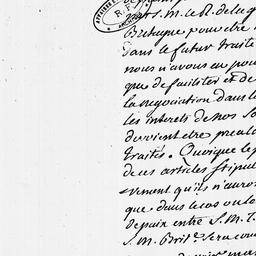 S. M. le R. de la g
Bretagne pouvoir
dans le futur traité
nous n'avons eu pou
que de faciliter et de
la negociation dans l
les interets de nos So
devoient etre
traités. Quoique le
de ces articles stipul
vement qu'ils n'auro
que dans le cas ou lo
depuis entre S. M. T.
S. M. Brit.e sera